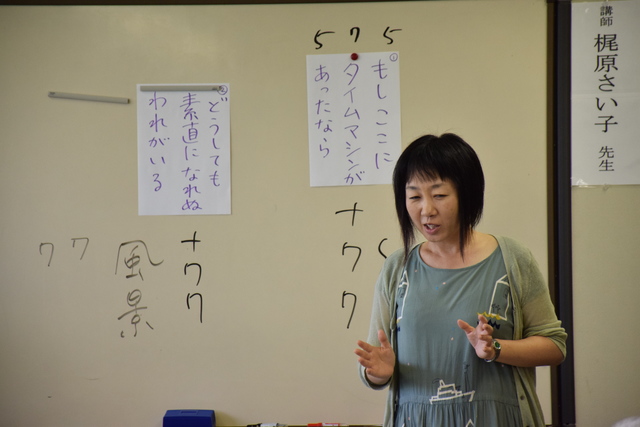 講師 梶原さい子 先生
5 7 5
①
もしここに
タイムマシンが
あったなら
+77
②
どうしても
素直になれぬ
われがいる
+77
風景
77